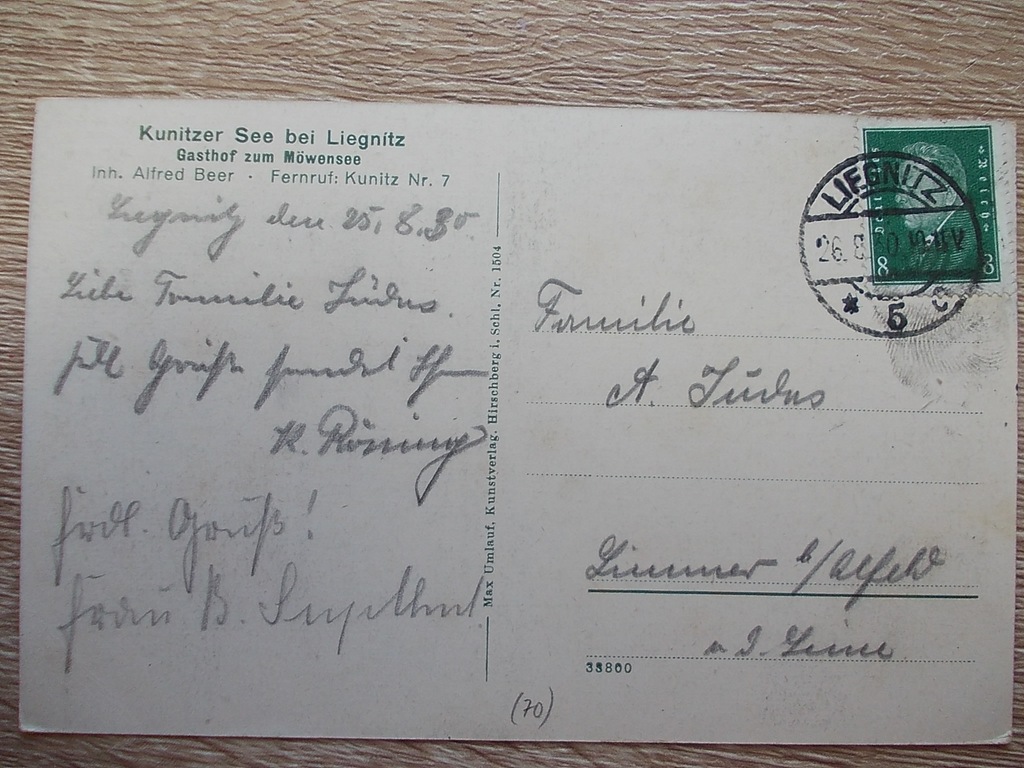 Kunitzer See bei Liegnitz
Gasthof zum Möwensee
Inh. Alfred Beer · Fernruf: Kunitz Nr. 7
Liegnitz den 25.8.30
Liebe Familie Jüdes.
Grüße sendet
K. Rösing
Frdl. Gruß!
Frau B.
Max Umlauf, Kunstverlag, Hirschberg i. Schl. Nr. 1504
LIEGNITZ
26.8.30
5
c
8
8
Familie
A. Jüdes
Limmer b/Alfeld
a. d. Leine
33800
(70)